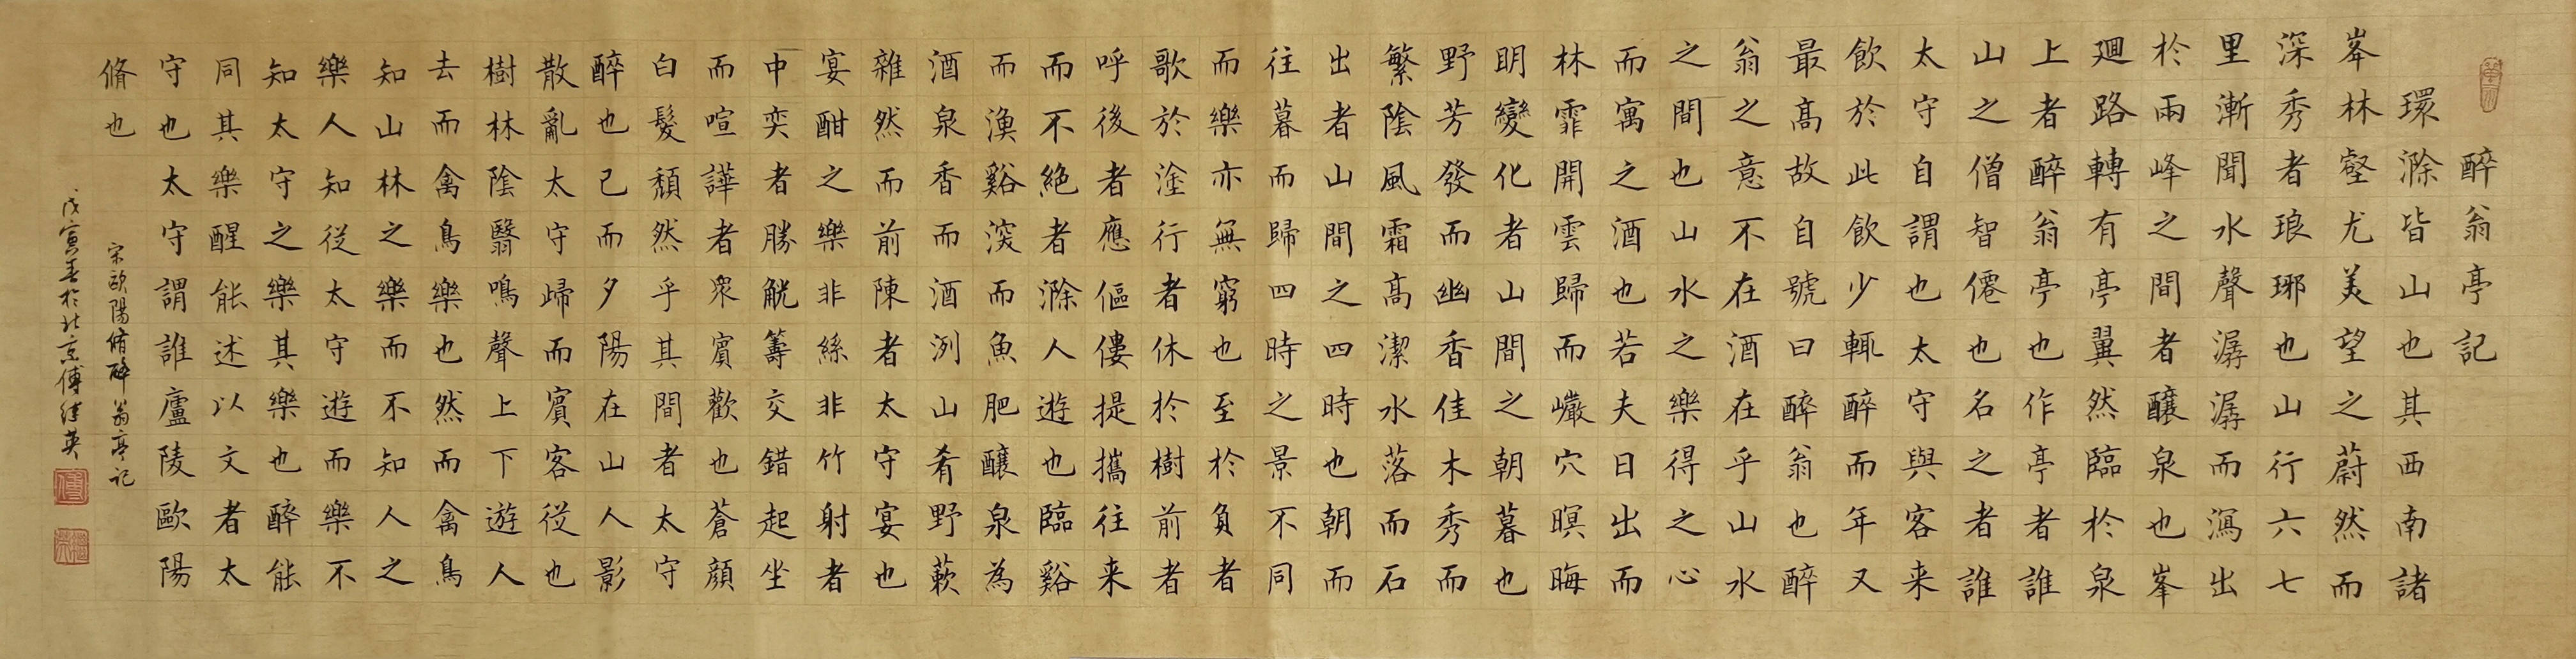 醉翁亭記
環滁皆山也其西南諸
峯林壑尤美望之蔚然而
深秀者琅琊也山行六七
里漸聞水聲潺潺而瀉出
於兩峰之間者釀泉也峯
廻路轉有亭翼然臨於泉
上者醉翁亭也作亭者誰
山之僧智僊也名之者誰
太守自謂也太守與客来
飲於此飲少輒醉而年又
最高故自號曰醉翁也醉
翁之意不在酒在乎山水
之間也山水之樂得之心
而寓之酒也若夫日出而
林霏開雲歸而巖穴暝晦
明變化者山間之朝暮也
野芳發而幽香佳木秀而
繁陰風霜高潔水落而石
出者山間之四時也朝而
往暮而歸四時之景不同
而樂亦無窮也至於負者
歌於塗行者休於樹前者
呼後者應傴僂提攜往来
而不絕者滁人遊也臨谿
而漁谿深而魚肥釀泉為
酒泉香而酒洌山肴野蔌
雜然而前陳者太守宴也
宴酣之樂非絲非竹射者
中奕者勝觥籌交錯起坐
而喧譁者衆賓歡也蒼顏
白髮頹然乎其間者太守
醉也已而夕陽在山人影
散亂太守歸而賓客從也
樹林陰翳鳴聲上下遊人
去而禽鳥樂也然而禽鳥
知山林之樂而不知人之
樂人知從太守遊而樂不
知太守之樂其樂也醉能
同其樂醒能述以文者太
守也太守謂誰廬陵歐陽
脩也
宋歐陽脩醉翁亭記
戊寅春於北京傅英